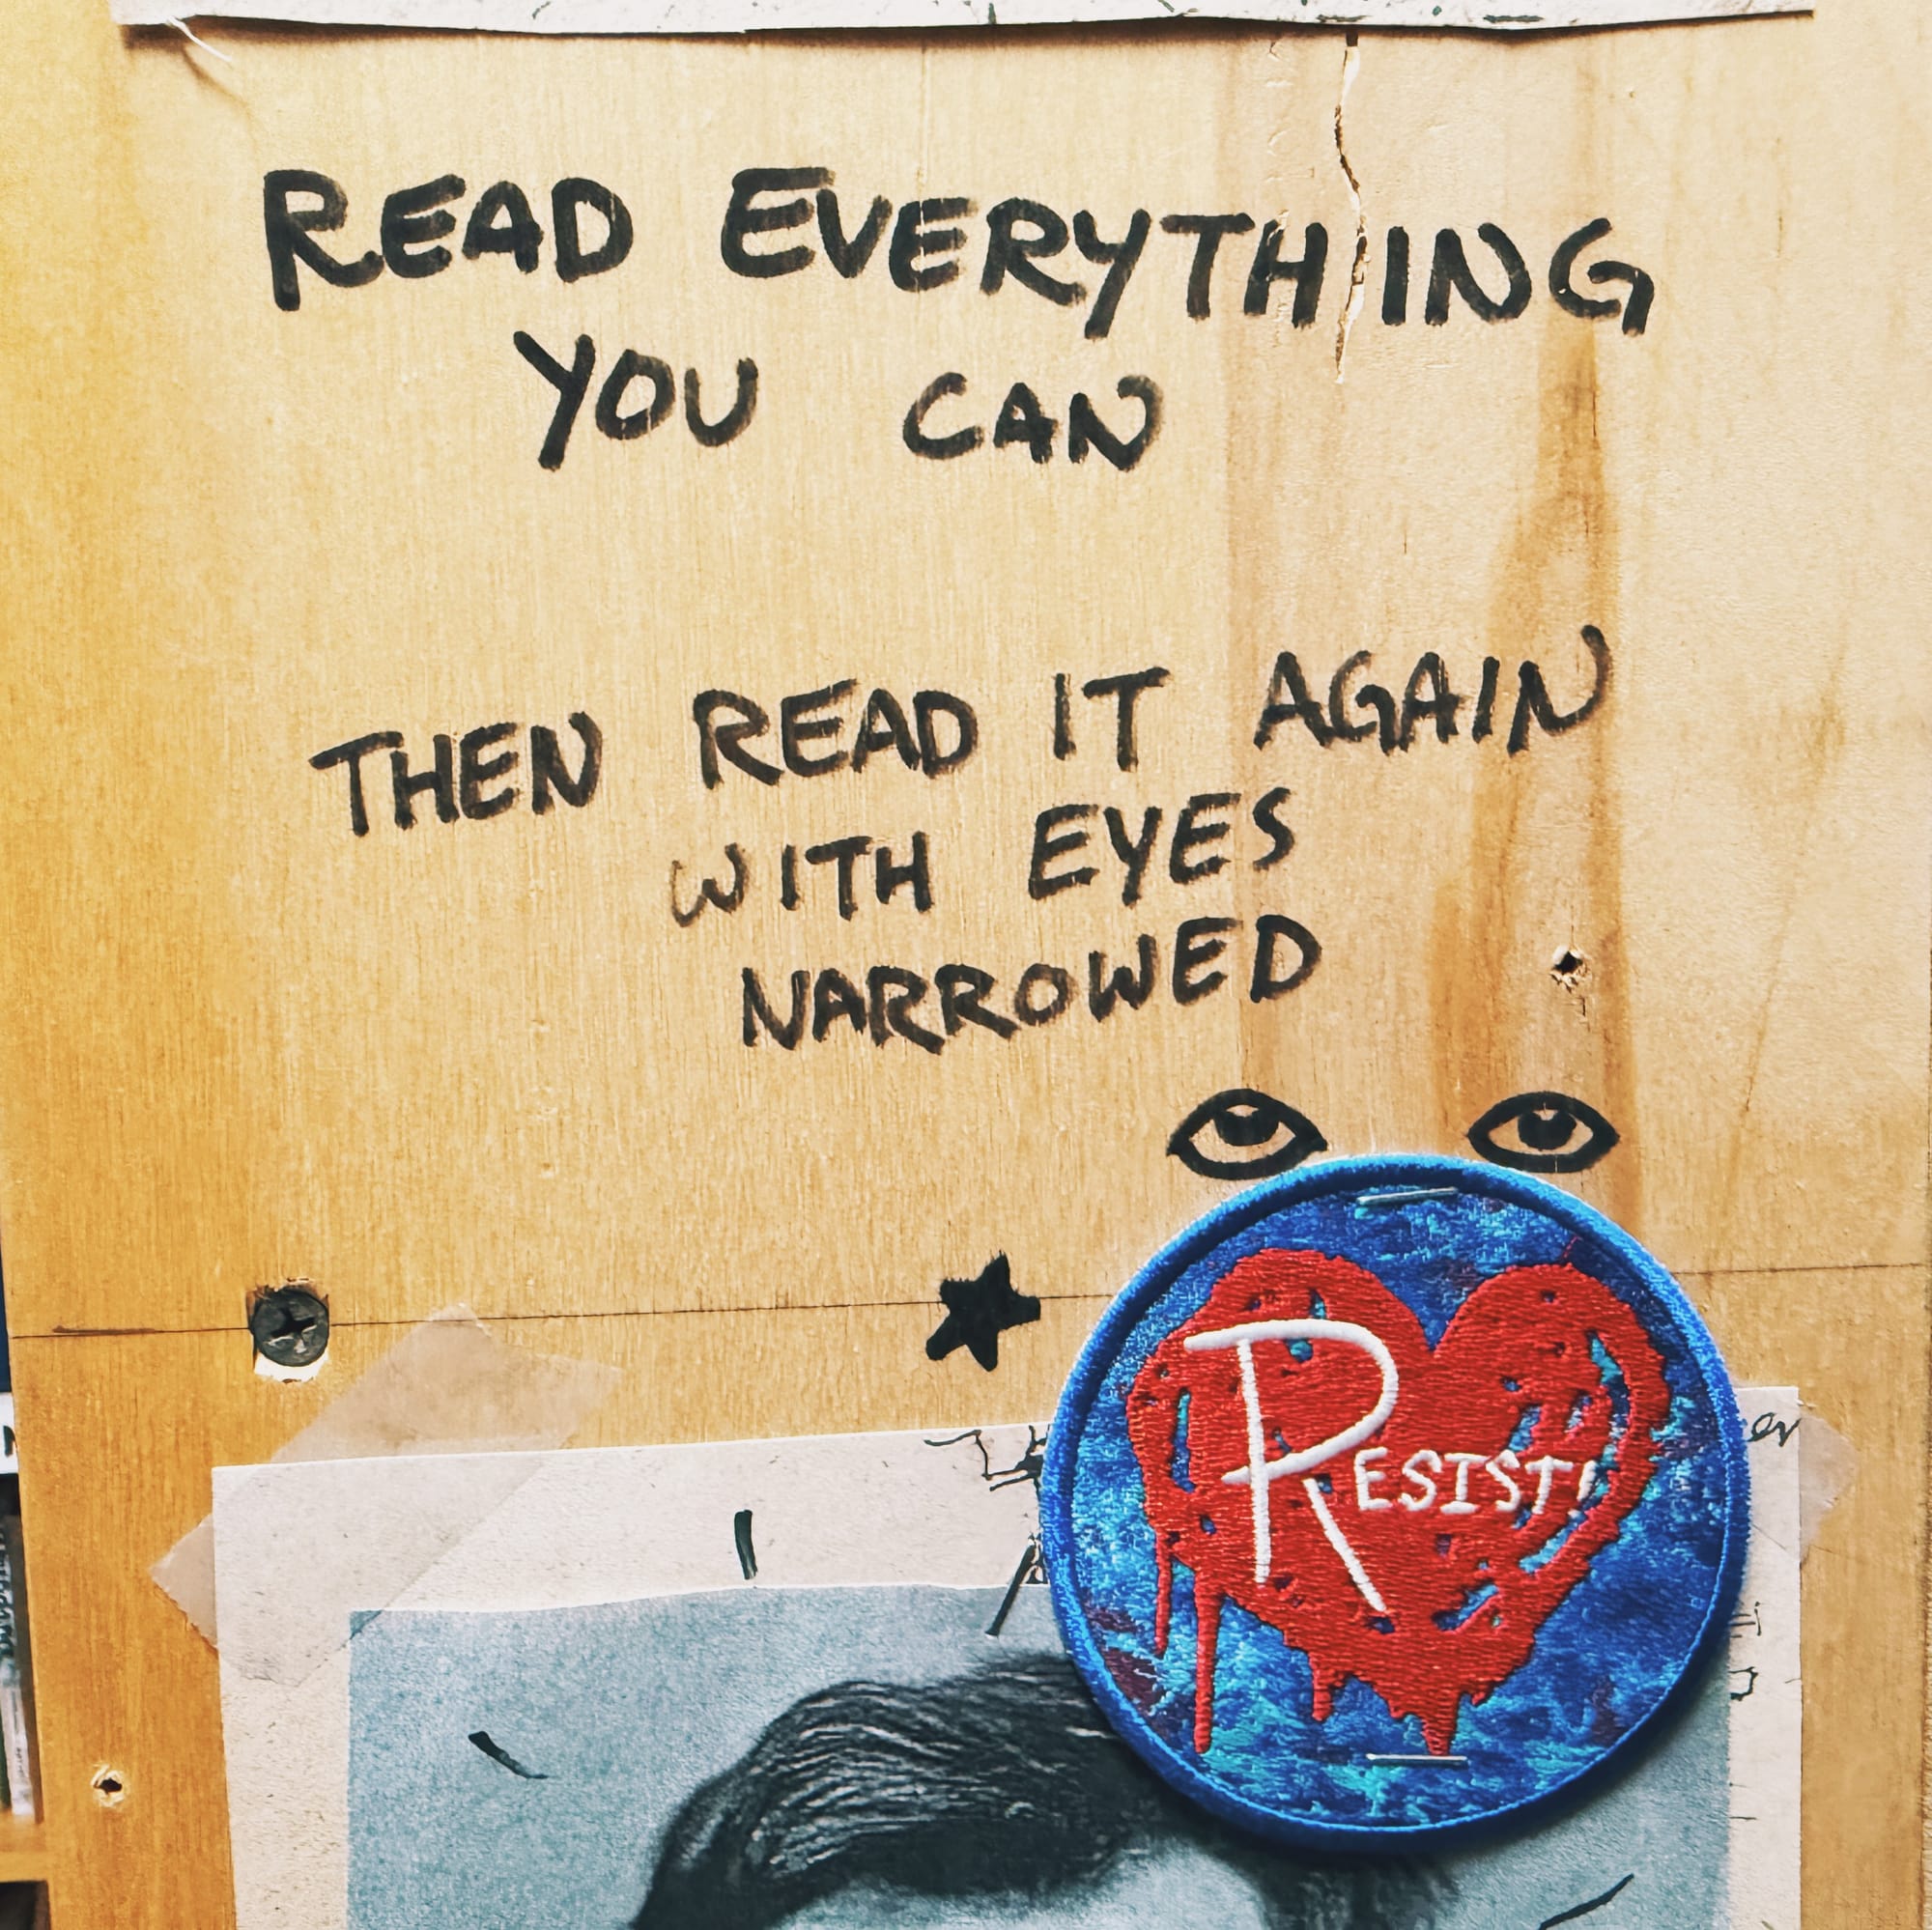 READ EVERYTHING
YOU CAN
THEN READ IT AGAIN
WITH EYES
NARROWED
RESIST!